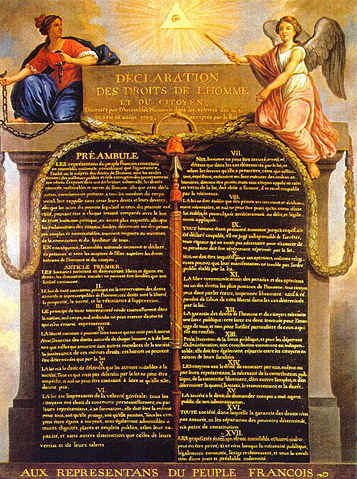 DÉCLARATION
DES DROITS DE L'HOMME
ET DU CITOYEN,
Décrétés par l'Assemblée Nationale dans les séances des 20, 21
23, 24 et 26 août 1789, acceptés par le Roi
PRÉAMBULE
LES représentans du peuple François, constitués
en assemblée nationale, considérant que l'ignorance,
l'oubli ou le mépris des droits de l'homme sont les seules
causes des malheurs publics et de la corruption des gouvernemens
ont résolu d'exposer dans une déclaration solemnelle, les droits
naturels, inaliénables et sacrés de l'homme; afin que cette déclaration
constamment présente à tous les membres du corps
social, leur rappelle sans cesse leurs droits et leurs devoirs;
afin que les actes du pouvoir législatif et ceux du pouvoir exé-
cutif, pouvant être à chaque instant comparés avec le but
de toute institution politique, en soient plus respectés; afin que
les réclamations des citoyens, fondées désormais sur des principes
simples et incontestables, tournent toujours au maintien
de la constitution et du bonheur de tous.
EN conséquence, l'assemblée nationale reconnoit et déclare,
en présence et sous les auspices de l'Être suprême les droits
suivans de l'homme et du citoyen.
ARTICLE PREMIER.
LES hommes naissent et demeurent libres et égaux en
droits, les distinctions sociales ne peuvent être fondées que sur
l'utilité commune.
II.
LE but de toute association politique est la conservation des droits
naturels et imprescriptibles de l'homme; ces droits sont la liberté,
la propriété, la sureté, et la résistance à l'oppression.
LE principe de toute souveraineté réside essentiellement dans
la nation, nul corps, nul individu ne peut exercer d'autorité
qui n'en émane expressément.
LA liberté consiste à pouvoir faire tout ce qui ne nuit pas à autrui.
Ainsi, l'exercice des droits naturels de chaque homme, n'a de bor-
nes que celles qui assurent aux autres membres de la société
la jouissance de ces mêmes droits; ces bornes ne peuvent
être déterminées que par la loi.
LA loi n'a le droit de défendre que les actions nuisibles à la
société. Tout ce qui n'est pas défendu par la loi ne peut être
empêché, et nul ne peut être contraint à faire ce qu'elle n'or-
donne pas.
VI.
LA loi est l'expression de la volonté générale; tous les
citoyens ont droit de concourir personnellement, ou par
leurs représentans, à sa formation; elle doit être la même
pour tous, soit qu'elle protège, soit qu'elle punisse. Tous les cito-
yens étant égaux à ses yeux, sont également admissibles à
toutes dignités, places et emplois publics, selon leur ca-
pacité, et sans autres distinctions que celles de leurs
vertus et de leurs talens.
VII.
NUL homme ne peut être accusé, arrêté ni
détenu que dans les cas déterminés par la loi, et
selon les formes qu'elle a prescrites, ceux qui sollici-
tent, expédient, exécutent ou font exécuter des ordres
arbitraires, doivent être punis; mais tout citoyen appelé ou saisi
en vertu de la loi, doit obéir à l'instant, il se rend coupable
par la résistance.
VIII.
LA loi ne doit établir que des peines strictement et évidem-
ment nécessaires, et nul ne peut être puni qu'en vertu d'une
loi établie et promulguée antérieurement au délit, et légale-
ment appliquée.
IX.
TOUT homme étant présumé innocent jusqu'à ce qu'il ait
été déclaré coupable, s'il est jugé indispensable de l'arrêter,
toute rigueur qui ne serait pas nécessaire pour s'assurer de
sa personne doit être sévèrement réprimée par la loi.
X.
NUL ne doit être inquiété pour ses opinions, mêmes religi-
euses pourvu que leur manifestation ne trouble pas l'ordre
public établi par la loi.
XI.
LA libre communication des pensées et des opinions
est un des droits les plus précieux de l'homme; tout citoyen
peut donc parler, écrire, imprimer librement; sauf à ré-
pondre de l'abus de cette liberté dans les cas déterminés
par la loi.
XII.
LA garantie des droits de l'homme et du citoyen nécessite
une force publique; cette force est donc instituée pour l'avan-
tage de tous, et non pour l'utilité particulière de ceux à qui
elle est confiée.
XIII.
POUR l'entretien de la force publique, et pour les dépenses
d'administration, une contribution commune est indispen-
sable; elle doit être également répartie entre les citoyens en
raison de leurs facultés.
XIV.
LES citoyens ont le droit de constater par eux-mêmes ou
par leurs représentans, la nécessité de la contribution pub-
lique, de la consentir librement, d'en suivre l'emploi, et d'en
déterminer la quotité, l'assiette, le recouvrement et la durée.
XV.
LA société a le droit de demander compte à tout agent
public de son administration.
XVI.
TOUTE société, dans laquelle la garantie des droits n'est
pas assurée, ni la séparation des pouvoirs déterminée,
n'a point de constitution.
XVII.
LES propriétés étant un droit inviolable et sacré, nul ne
peut en être privé, si ce n'est lorsque la nécessité publique,
légalement constatée, l'exige évidemment, et sous la condi-
tion d'une juste et préalable indemnité.
AUX REPRESENTANS DU PEUPLE FRANCOIS